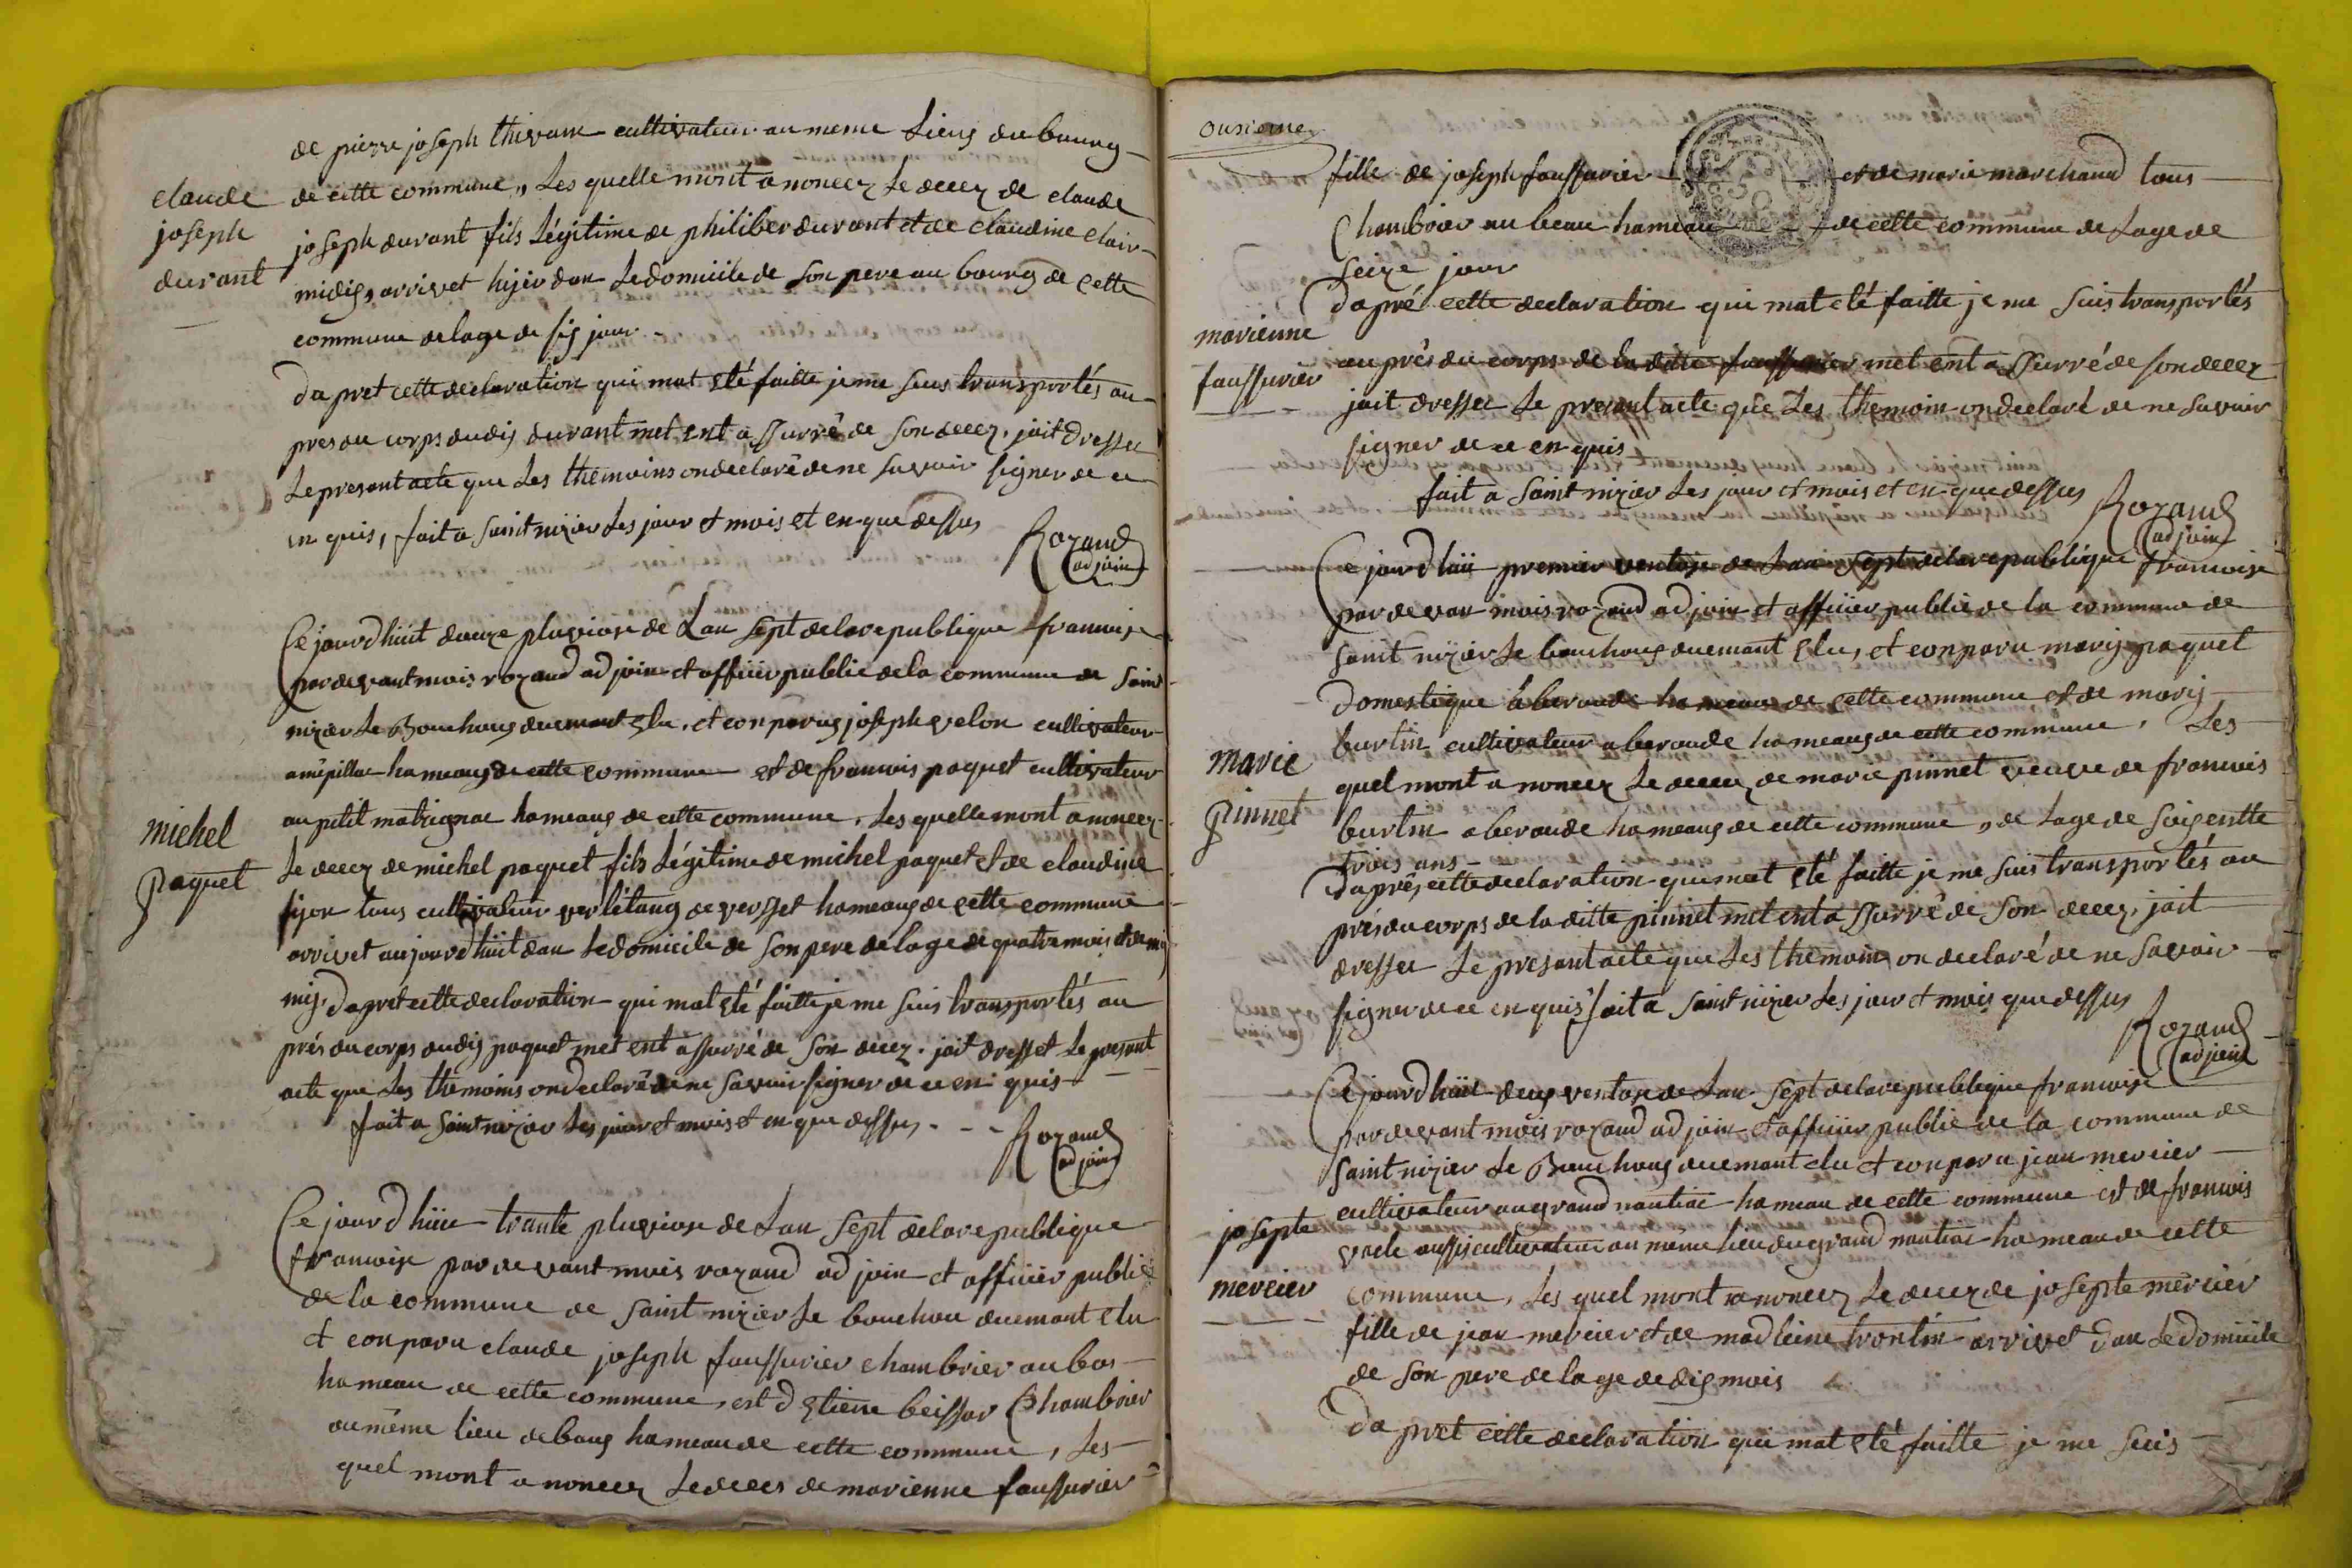 de pierre joseph thevaux cultivateur au meme Lieus du bourg
claude
joseph
durant
de cette commune,, Les quelle mont a noncez Le decez de claude
joseph durant fils Légitime de philiber durant et de claudine clair
midis, arrivet hijer dan Le domicile de son pere au bourg de cette
commune de lage de six jour
Dapret cette declaration qui mat été faitte je me suis transportés au
pres du corps dudis durant met ent assurré de son decez, jait dresser
Le presant acte que Les themoins on declaré de ne savoir signer de ce
en quis, fait a Saint nizier Les jour et mois et en que dessus
Rozand
adjoin
Ce jourdhuit douze pluviose de Lan sept de la republique francoise
par devant mois rozand adjoin et officier public de la commune de Saint
nizier Le Bouchoug duemant Elu, et conparus joseph velon cultivateur
a mépillac hameaus de cette commune et de francois paquet cultivateur
michel
paquet
au petit matrignac hameaus de cette commune, Les quelle mont a noncez
Le decez de michel paquet fils Légitime de michel paquet et de claudine
fijon tous cultivateur ver létang de versset hameaus de cette commune
arrivet aujourdhuit dan Le domicile de son pere de lage de quatre mois et demij
mij, Dapret cette declaration qui mat Eté faitte je me suis transportés au
prés du corps dudis paquet met ent assurré de son decez. jait dresset Le presant
acte que Les themoins on declaré de ne savoir signer de ce en quis
fait a Saint nizier Les jour et mois et en que dessus
Rozand
adjoin
Ce jourdhuie trante pluviose de Lan sept de la republique
francoise par devant mois rozand adjoin et officier public
de la commune de Saint nizier Le bouchou duemant Elu
et conparu claude joseph foussurier chambrier au bos
hameau de cette commune, est d Etiene beissar Chambrier
au méme lieu de baus hameau de cette commune, Les
quel mont a noncez Le deces de marienne foussurier
onzieme
fille de joseph foussurier et de marie marchand tous
Chambrier au beau hameau de cette commune de Lage de
seize jour
marienne
foussurier
Dapré cette declaration qui mat été faitte je me suis transportés
au prés du corps de la ditte foussurier met ent assurré de son decez
jait dresser Le presant acte que Les themoin on declaré de ne savoir
signer de ce en quis
fait a Saint nizier Les jour et mois et en que dessus
Rozand
adjoin
Ce jourdhui premier ventose de Lan sept de la republique francoise
par devan mois rozand adjoin et officier public de la commune de
Saint nizier Le bouchoug duemant Elu, et conparu marij paquet
Domestique a beroude hameaus de cette commune et de marij
marie
pinnet
burtin cultivateur a beroude hameaus de cette commune, Les
quel mont a noncez Le decez de marie pinnet veuve de francois
burtin a beroude hameaus de cette commune,, de Lage de soisentte
trois ans
Daprés cette declaration qui mat Eté faitte je me suis transportés au
prés du corps de la ditte pinnet met ent assurré de son decez, jait
dresser Le presant acte que Les themoin on declaré de ne savoir
signer de ce en quis fait a Saint nizier Les jour et mois que dessus
Rozand
adjoin
Ce jourdhuie deus ventose de Lan sept de la republique francoise
par devant mois rozand adjoin et officier public de la commune de
Saint nizier Le Bouchoug duemant elu et conparu jean mercier
josepte
mercier
cultivateur au grand nantiac hameau de cette commune est de francois
vrele aussis cultivateur au méme lieu du grand nantiac hameau de cette
commune, Les quel mont anoncez Le decez de josepte mercier
fille de jean mercier et de madleine trontin arrivet dan Le domicile
de son pere de lage de dix mois
Dapret cette declaration qui mat Eté faitte je me suis